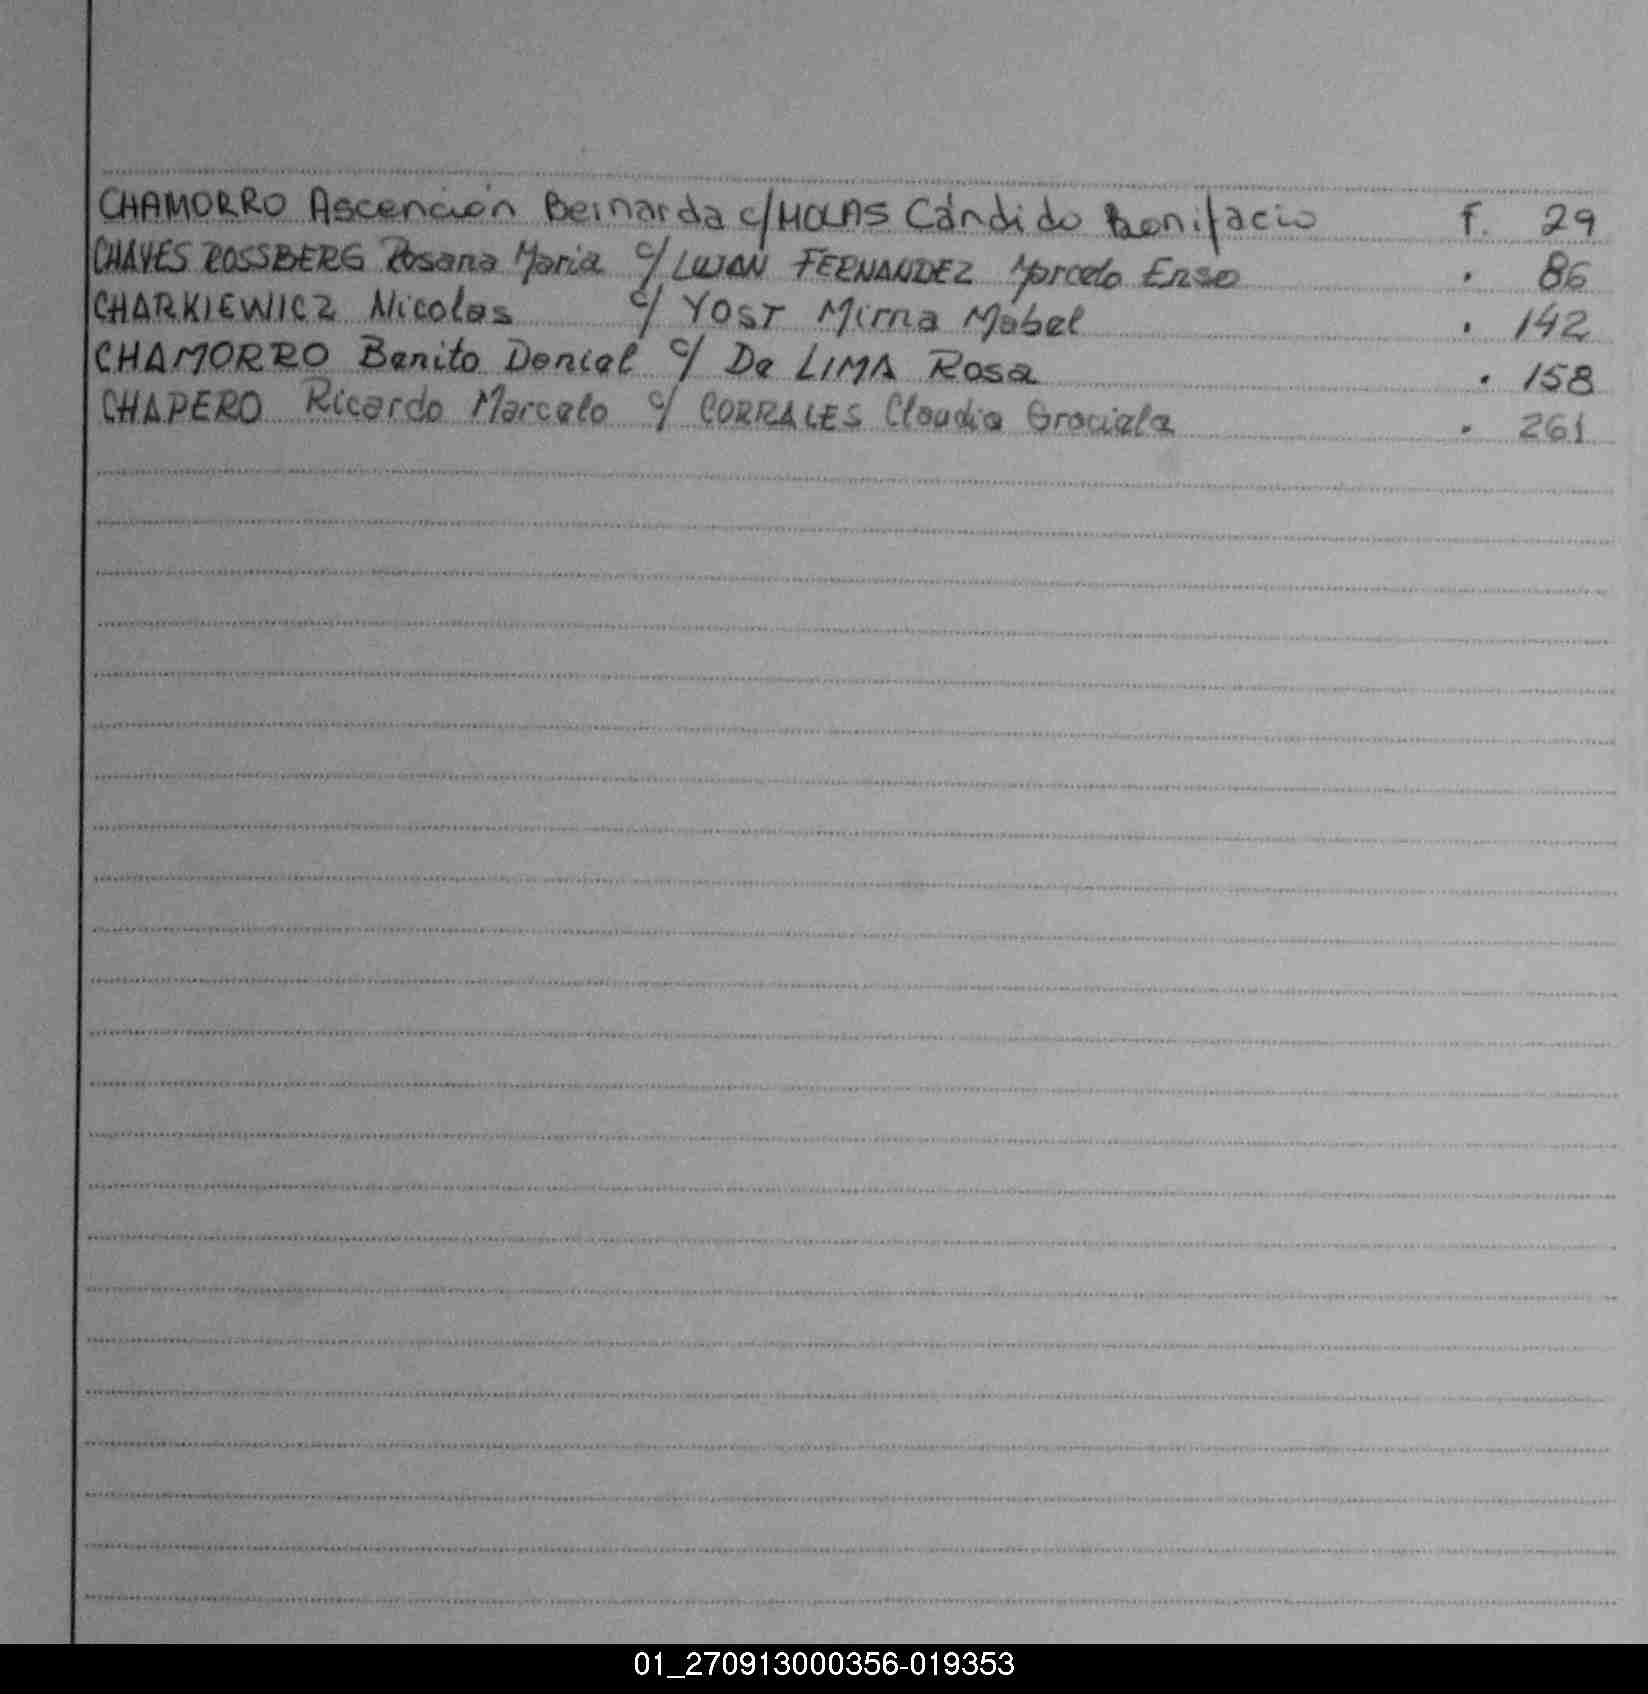 CHAMORRO Ascención Bernarda c/ MOLAS Cándido Bonifacio f. 29
CHAVES ROSSBERG Rosana Maria c/ LUJAN FERNANDEZ Marcelo Enso . 86
CHARKIEWICZ Nicolas c/ YOST Mirna Mabel . 142
CHAMORRO Benito Daniel c/ De LIMA Rosa . 158
CHAPERO Ricardo Marcelo c/ CORRALES Claudia Graciela . 261
01_270913000356-019353